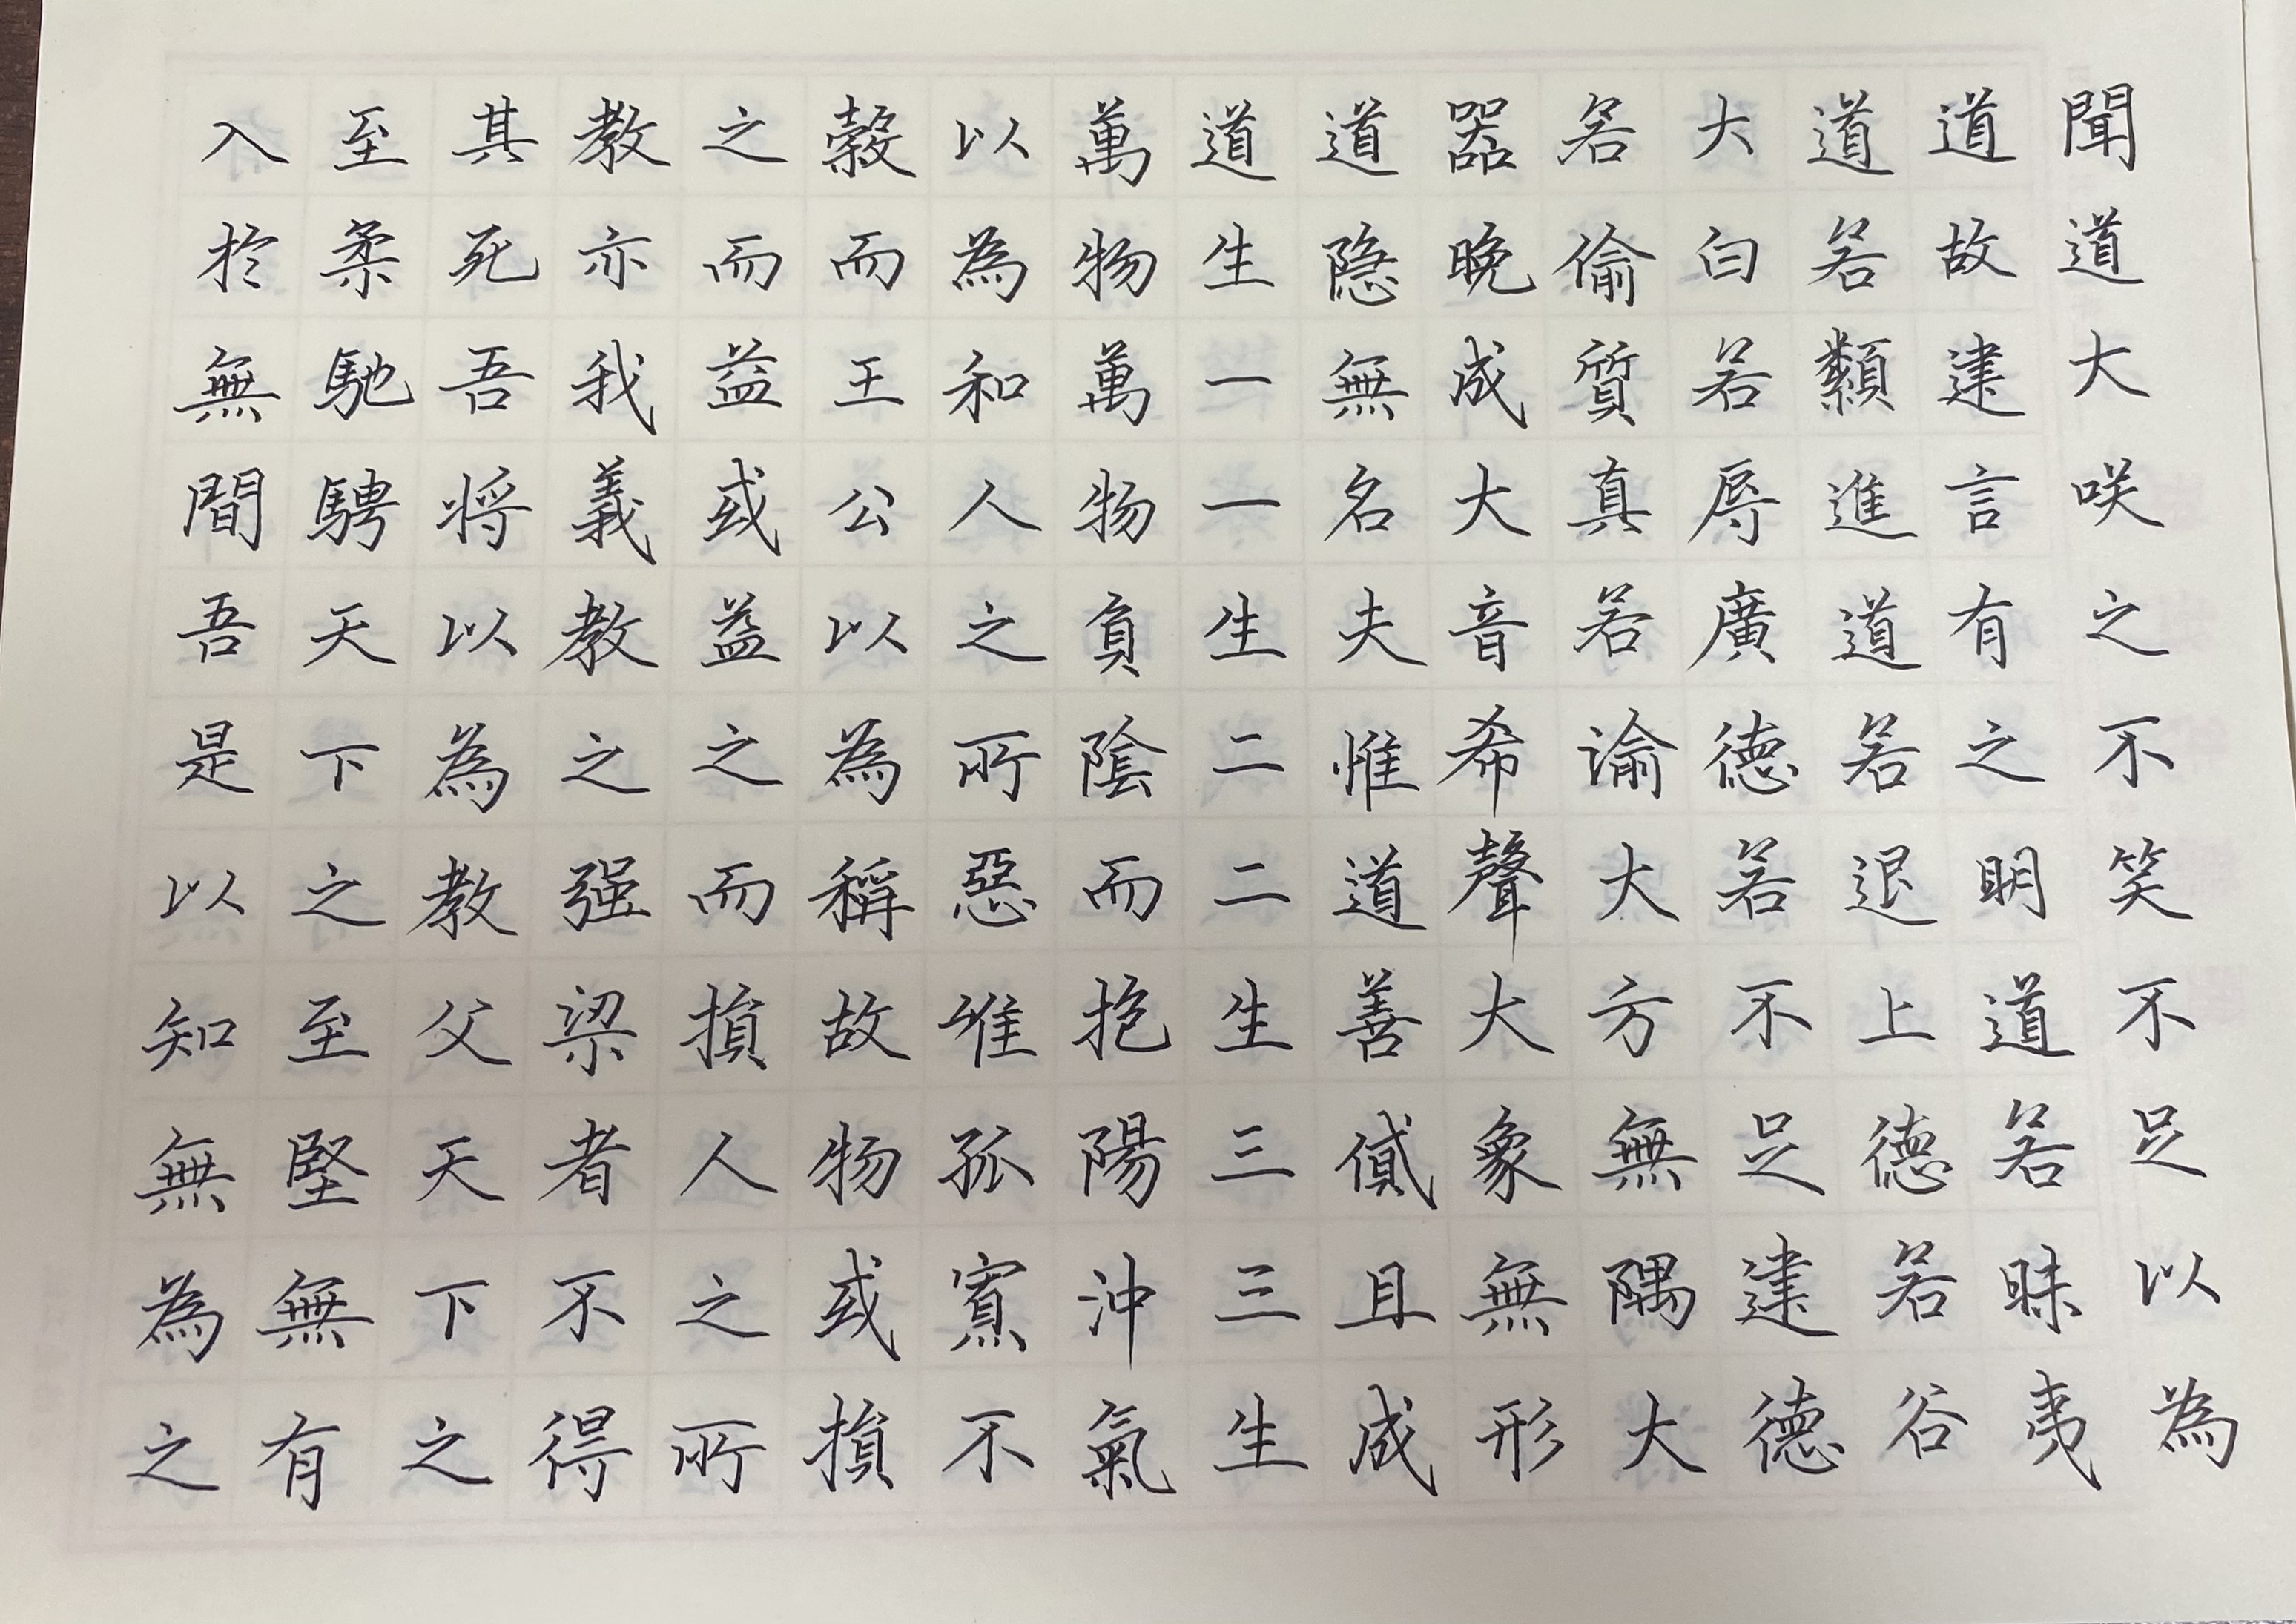 聞道大咲之不笑不足以為
道故建言有之明道若昧夷
道若纇進道若退上德若谷
大白若辱廣德若不足建德
若偷質真若渝大方無隅大
器晚成大音希聲大象無形
道隱無名夫惟道善貸且成
道生一一生二二生三三生
萬物萬物負陰而抱陽沖氣
以為和人之所惡唯孤寡不
穀而王公以為稱故物或損
之而益或益之而損人之所
教亦我義教之强梁者不得
其死吾将以為教父天下之
至柔馳騁天下之至堅無有
入於無間吾是以知無為之